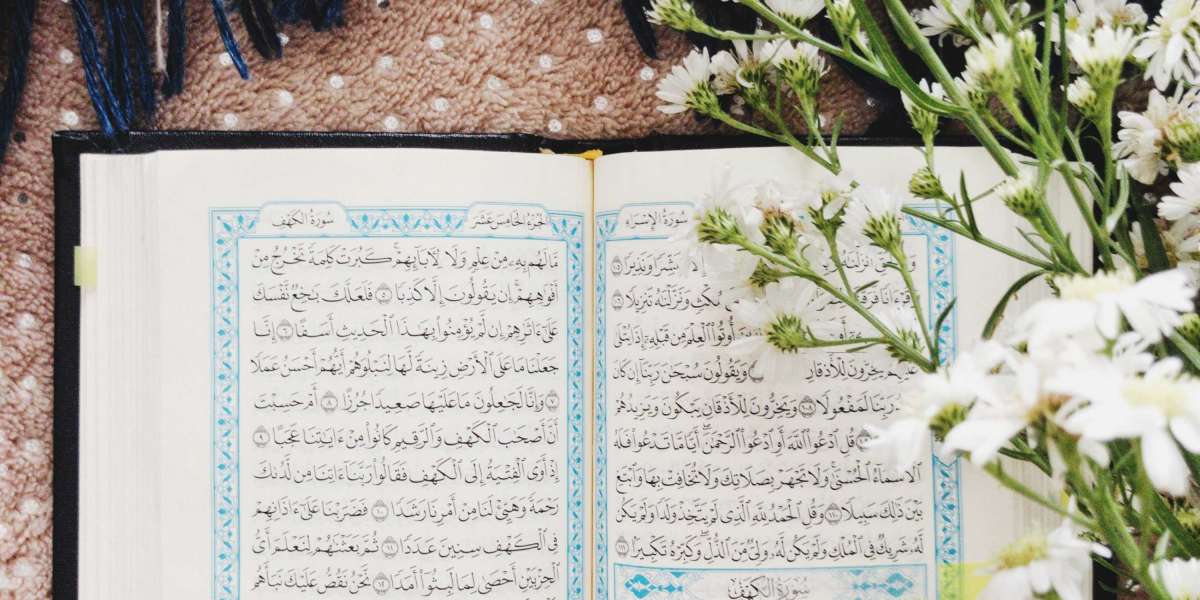 سُورَةُ الإِسْرَاءِ
إِلَّا وَنَذِيرًا ١٠٥
مُكْثٍ وَنَزَّلْنَٰهُ تَنزِيلًا ١٠٦
أُوتُوا۟ ٱلْعِلْمَ مِن قَبْلِهِۦٓ إِذَا يُتْلَىٰ
عَلَيْهِمْ يَخِرُّونَ لِلْأَذْقَانِ وَيَقُولُونَ سُبْحَٰنَ رَبِّنَآ إِن كَانَ
رَبِّنَا لَمَفْعُولًا ١٠٨ وَيَخِرُّونَ لِلْأَذْقَانِ يَبْكُونَ وَيَزِيدُهُمْ
قُلِ ٱدْعُوا۟ ٱللَّهَ أَوِ ٱدْعُوا۟ ٱلرَّحْمَٰنَ أَيًّا مَّا تَدْعُوا۟ فَلَهُ
ٱلْأَسْمَآءُ ٱلْحُسْنَىٰ وَلَا تَجْهَرْ بِصَلَاتِكَ وَلَا تُخَافِتْ بِهَا وَٱبْتَغِ
بَيْنَ ذَٰلِكَ سَبِيلًا ١١٠ وَقُلِ ٱلْحَمْدُ لِلَّهِ ٱلَّذِى لَمْ يَتَّخِذْ وَلَدًا وَلَمْ يَكُن
لَّهُۥ شَرِيكٌ فِى ٱلْمُلْكِ وَلَمْ يَكُن لَّهُۥ وَلِىٌّ مِّنَ ٱلذُّلِّ وَكَبِّرْهُ تَكْبِيرًا ١١١
سُورَةُ الكَهْفِ
الجُزْءُ الخَامِسَ عَشَرَ
سُورَةُ الكَهْفِ
مَّا لَهُم بِهِۦ مِنْ عِلْمٍ وَلَا لِءَابَآئِهِمْ كَبُرَتْ كَلِمَةً تَخْرُجُ مِنْ
أَفْوَٰهِهِمْ إِن يَقُولُونَ إِلَّا كَذِبًا ٥ فَلَعَلَّكَ بَٰخِعٌ نَّفْسَكَ
عَلَىٰٓ ءَاثَٰرِهِمْ إِن لَّمْ يُؤْمِنُوا۟ بِهَٰذَا ٱلْحَدِيثِ أَسَفًا ٦ إِنَّا
جَعَلْنَا مَا عَلَى ٱلْأَرْضِ زِينَةً لَّهَا لِنَبْلُوَهُمْ أَيُّهُمْ أَحْسَنُ عَمَلًا
٧ وَإِنَّا لَجَٰعِلُونَ مَا عَلَيْهَا صَعِيدًا جُرُزًا ٨ أَمْ حَسِبْتَ
أَنَّ أَصْحَٰبَ ٱلْكَهْفِ وَٱلرَّقِيمِ كَانُوا۟ مِنْ ءَايَٰتِنَا عَجَبًا ٩
إِذْ أَوَى ٱلْفِتْيَةُ إِلَى ٱلْكَهْفِ فَقَالُوا۟ رَبَّنَآ ءَاتِنَا مِن لَّدُنكَ
رَحْمَةً وَهَيِّئْ لَنَا مِنْ أَمْرِنَا رَشَدًا ١٠ فَضَرَبْنَا عَلَىٰٓ ءَاذَانِهِمْ
فِى ٱلْكَهْفِ سِنِينَ عَدَدًا ١١ ثُمَّ بَعَثْنَٰهُمْ لِنَعْلَمَ أَىُّ
ٱلْحِزْبَيْنِ أَحْصَىٰ لِمَا لَبِثُوٓا۟ أَمَدًا ١٢ نَّحْنُ نَقُصُّ عَلَيْكَ نَبَأَهُم